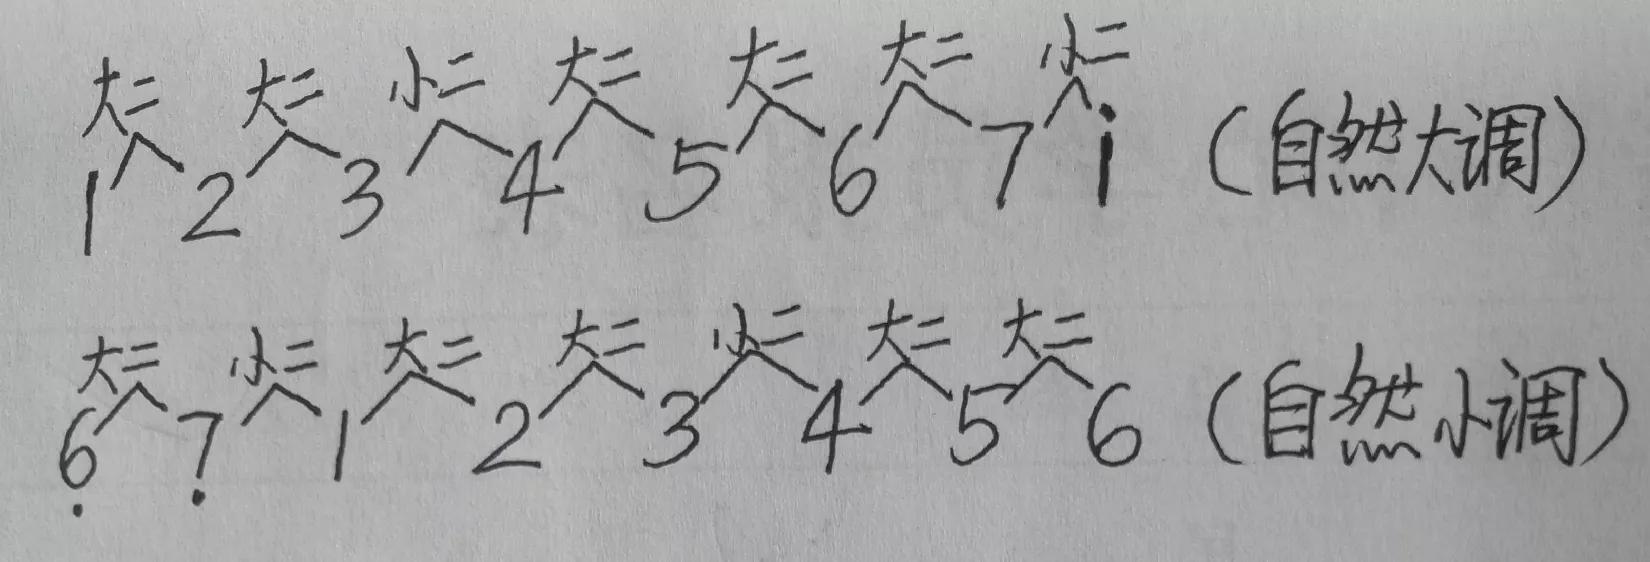 大二 大二 小二 大二 大二 大二 小二
1 2 3 4 5 6 7 i (自然大调)
大二 小二 大二 大二 小二 大二 大二
6̣ 7̣ 1 2 3 4 5 6 (自然小调)